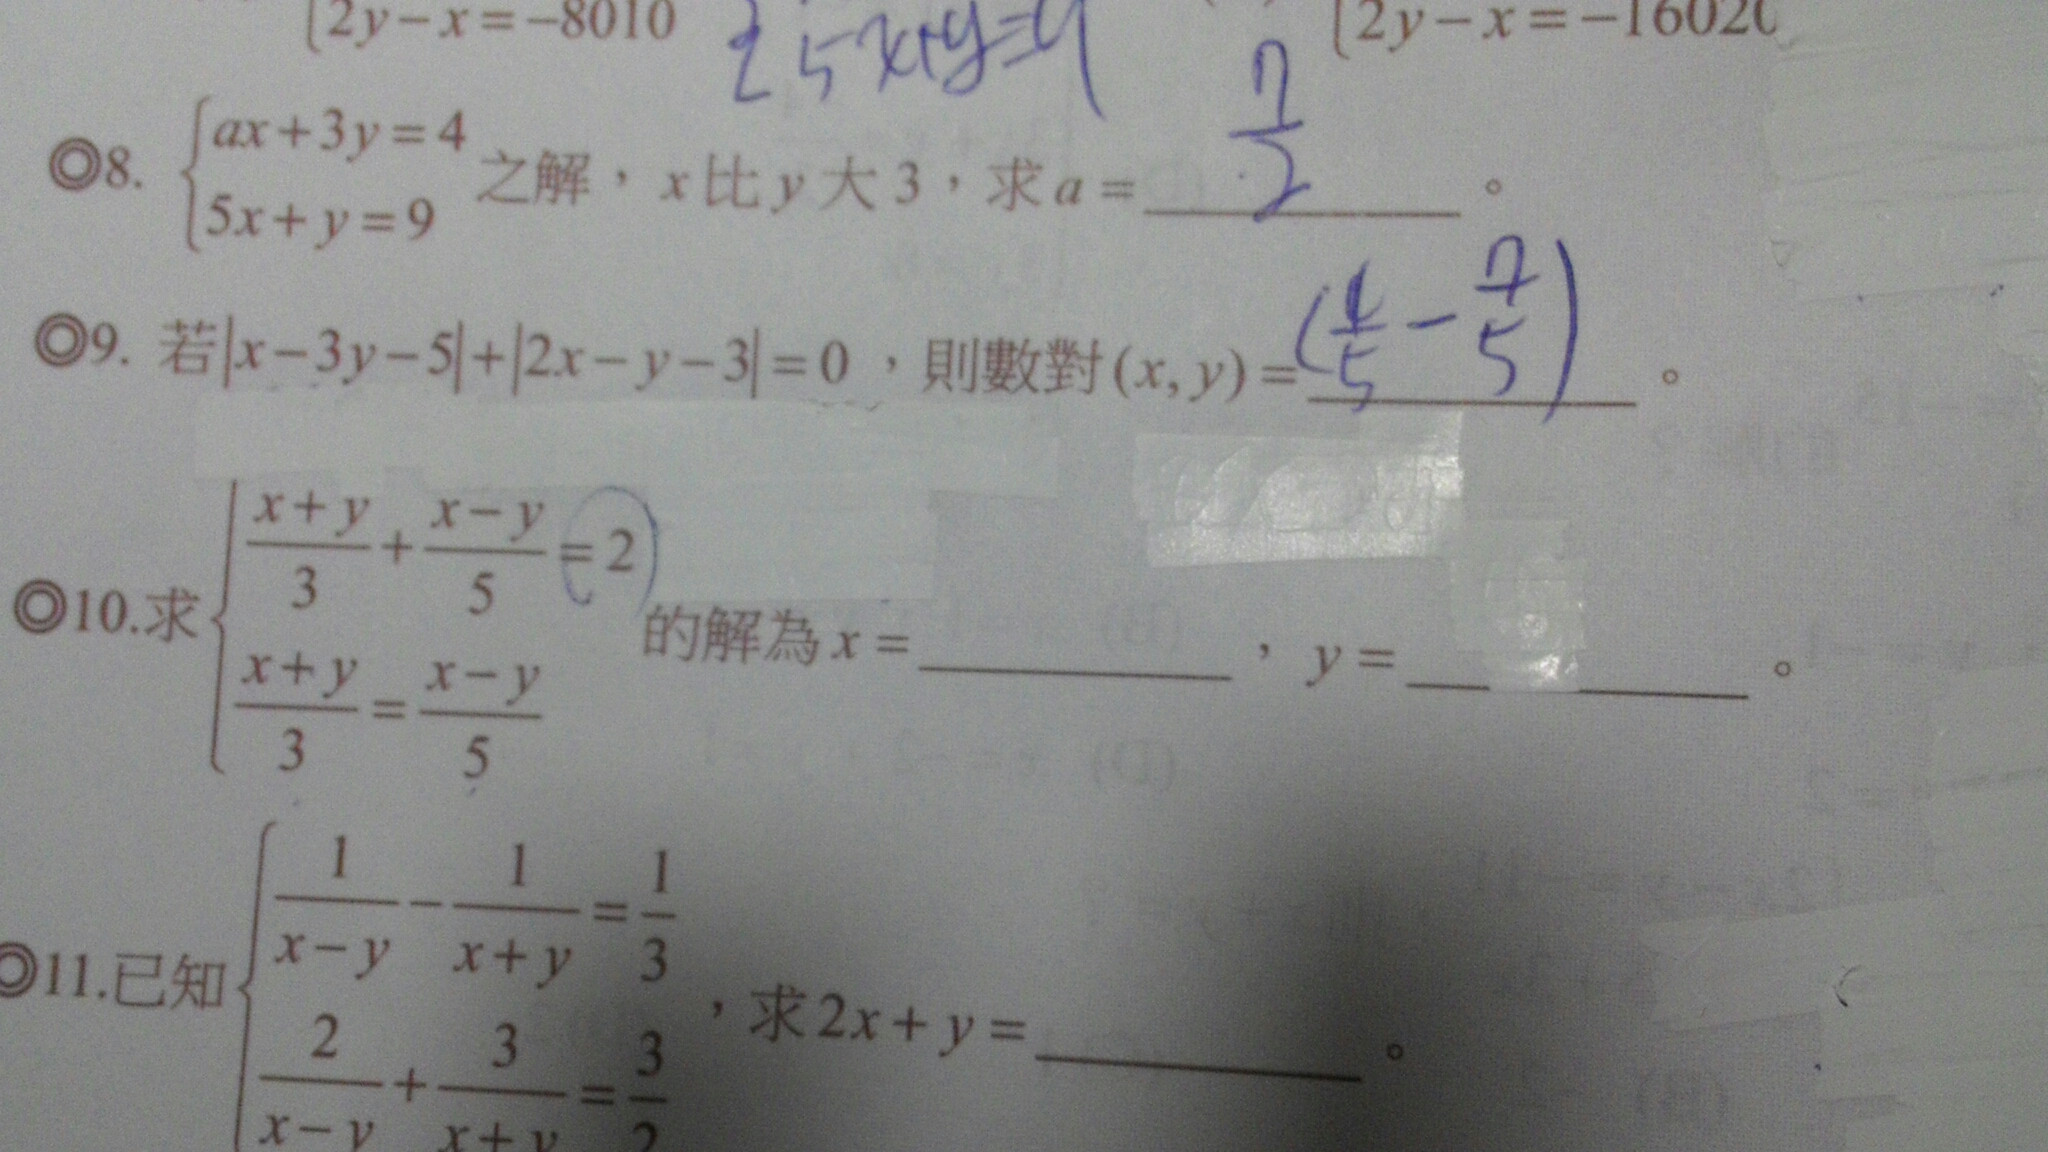 2y-x=-8010
5x+y=9
2y-x=-1602
◎8. { ax+3y=4
5x+y=9 之解，x比y大3，求a= 7/2 。
◎9. 若|x-3y-5|+|2x-y-3|=0，則數對(x,y)=(4/5 - 7/5) 。
◎10.求{ (x+y)/3 + (x-y)/5 = 2
(x+y)/3 = (x-y)/5 的解為x=______，y=______。
◎11.已知{ 1/(x-y) - 1/(x+y) = 1/3
2/(x-y) + 3/(x+y) = 3/2 ，求2x+y=______。